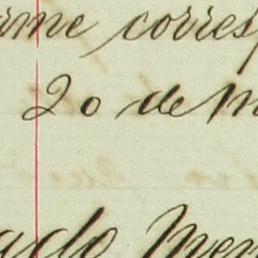 rme corres
20 de M
ado Men